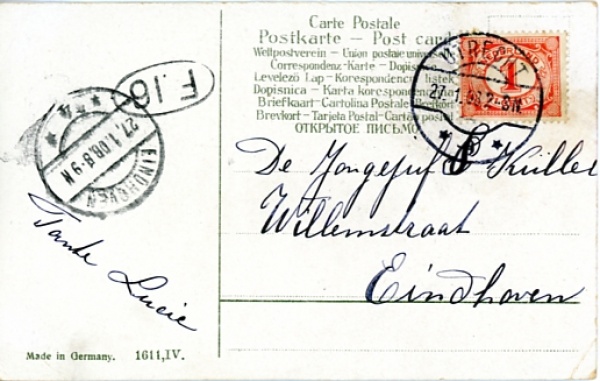 Carte Postale
Postkarte – Post card
Weltpostverein – Union postale univers
Correspondenz-Karte – Dopis
Levelező Lap – Korespondenční lístek
Dopisnica – Karta korespondencyjna
Briefkaart – Cartolina Postale
Brevkort – Tarjeta Postal – Cartão postal
ОТКРЫТОЕ ПИСЬМО
UTRECHT
27.1.08.2-8N
1
F.16
EINDHOVEN
27.1.08.8-9N
De Jongejuf S Küller
Willemstraat
Eindhoven
Tante Lucie
Made in Germany. 1611,IV.